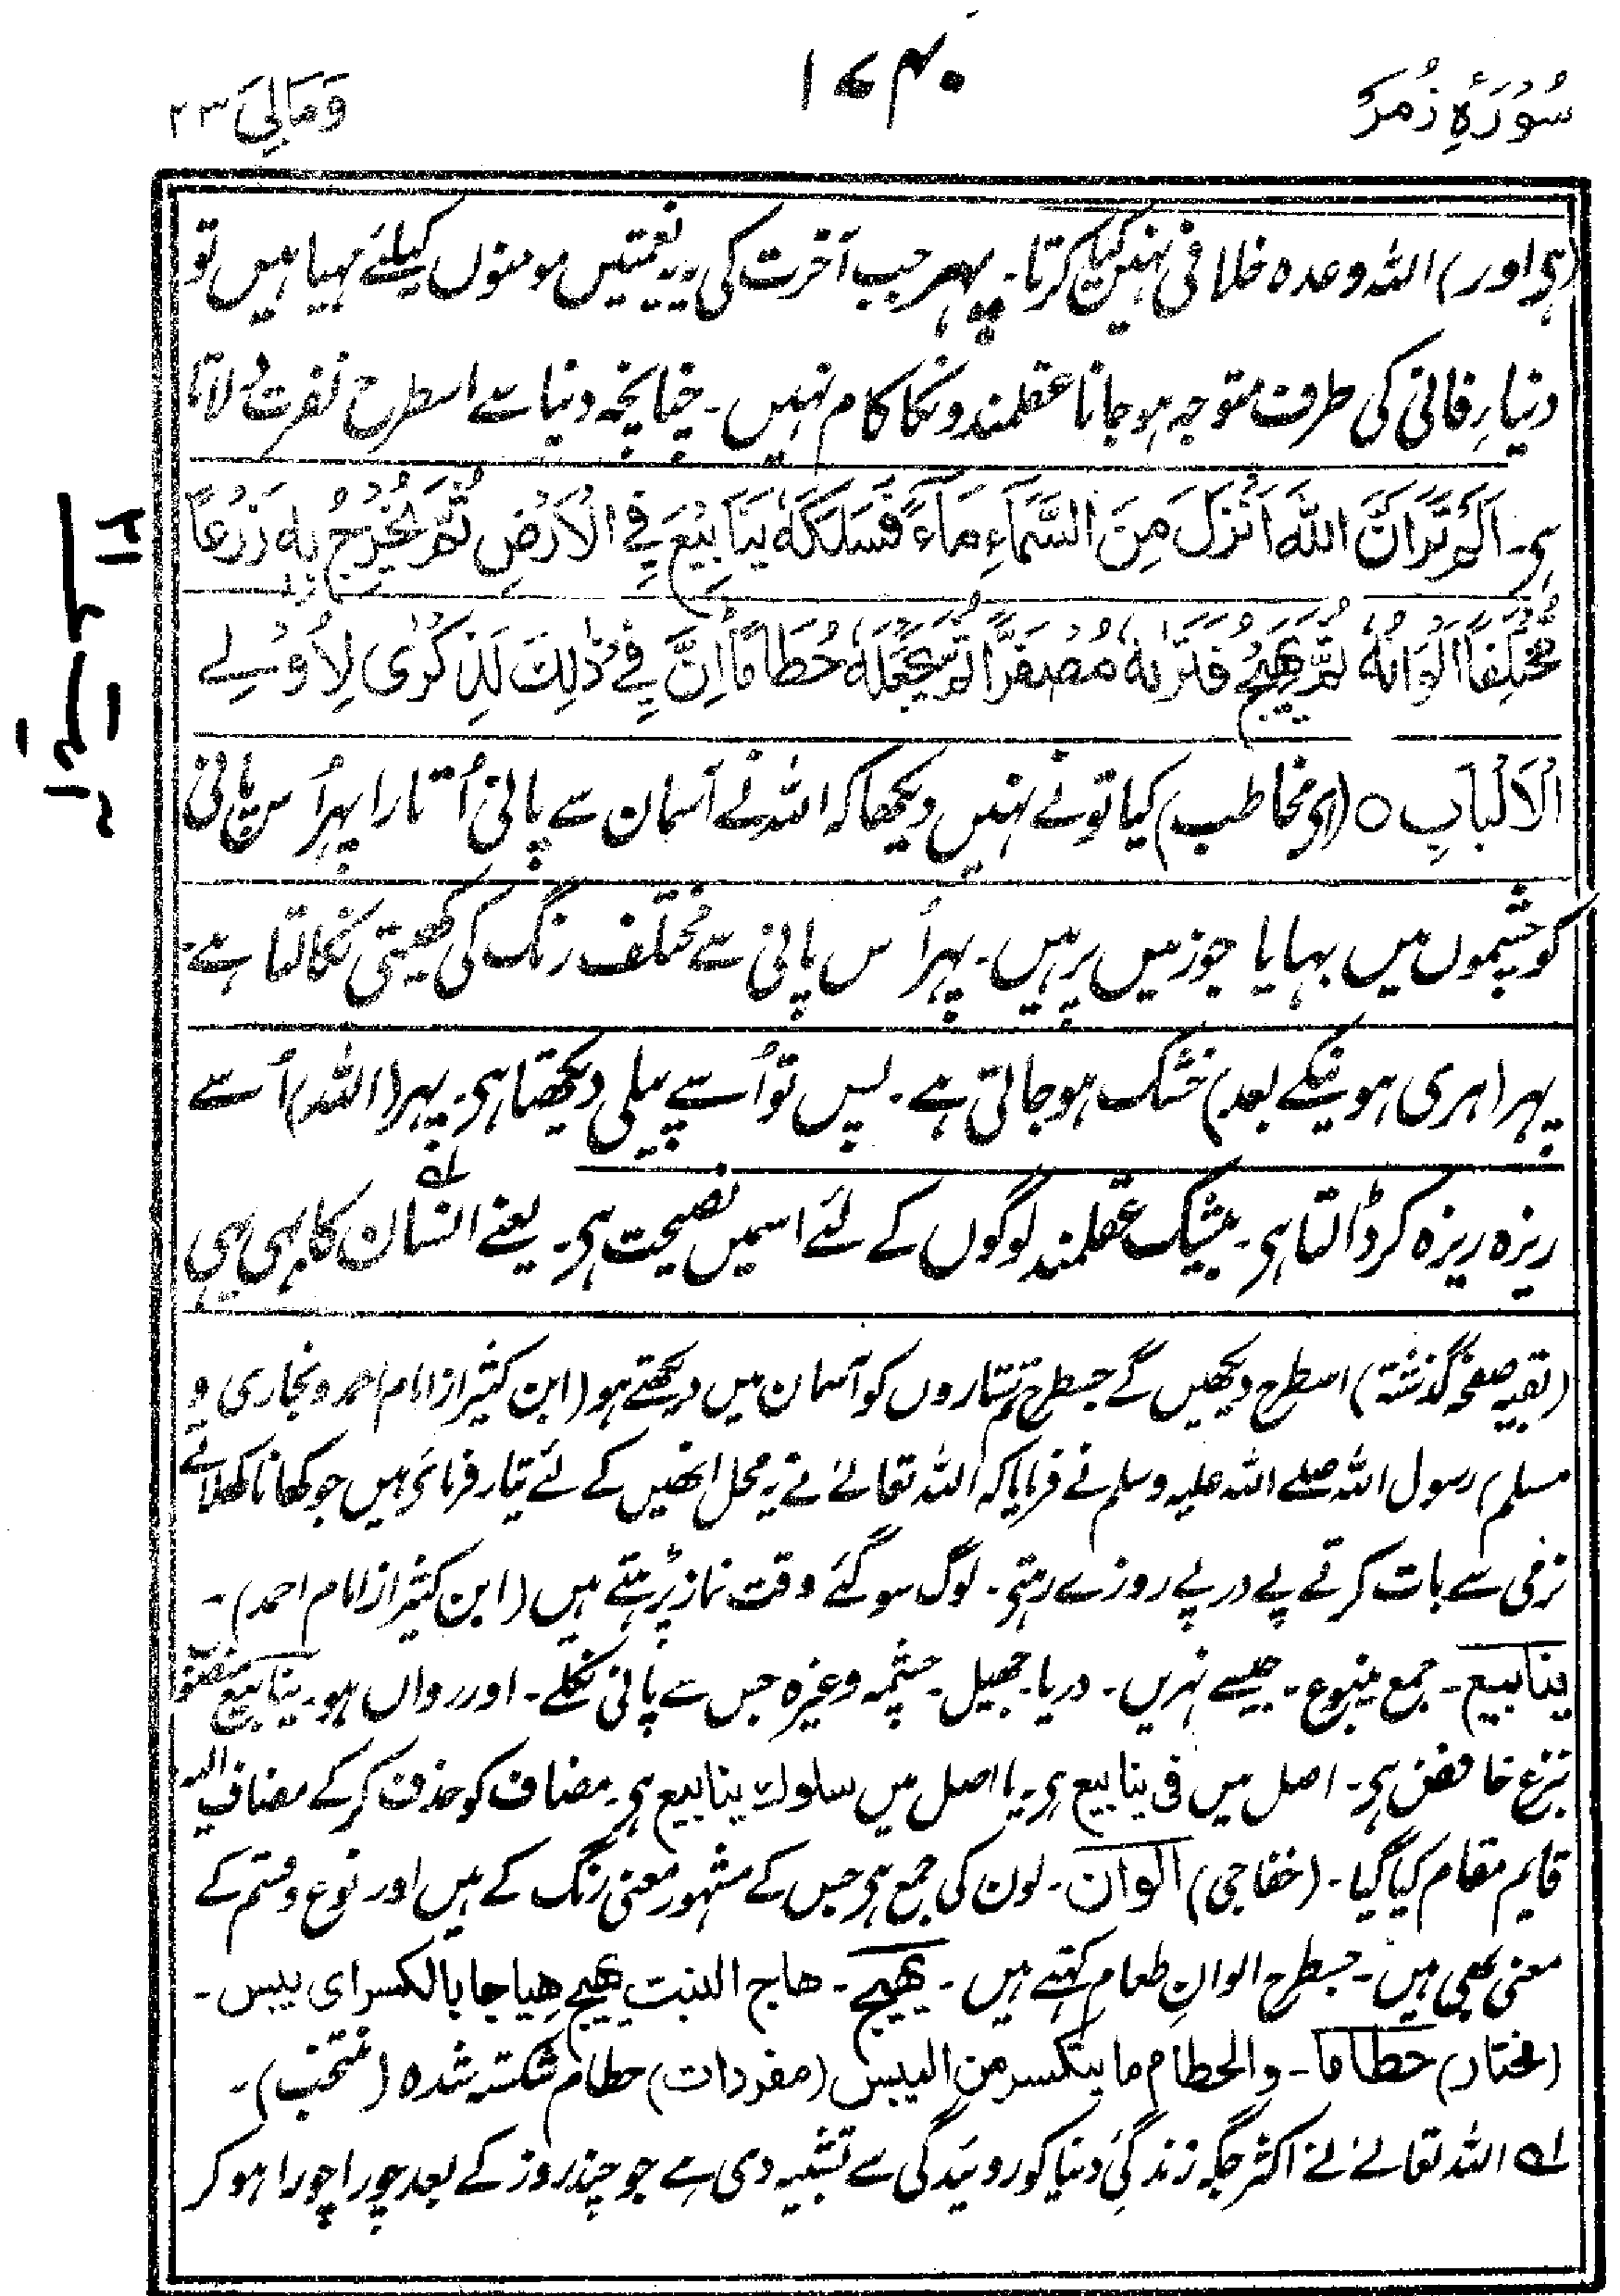 سُوْرَۃِ زُمَرْ
۱۷۴۰
وَمَالِیَ ۲۳
(ہی اور) اللہ وعدہ خلافی نہیں کیا کرتا۔ پہر جب آخرت کی یہ نعمتیں مومنوں کیلئے مہیا ہیں تو
دنیاِ فانی کی طرف متوجہ ہوجانا عقلمندونکا کام نہیں۔ چنانچہ دنیا سے اسطرح نفرت دلاتا
ہی۔ اَلَمْ تَرَ اَنَّ اللّٰهَ اَنْزَلَ مِنَ السَّمَآءِ مَآءً فَسَلَكَهٗ یَنَابِیْعَ فِی الْاَرْضِ ثُمَّ یُخْرِجُ بِهٖ زَرْعًا
مُّخْتَلِفًا اَلْوَانُهٗ ثُمَّ یَهِیْجُ فَتَرٰىهُ مُصْفَرًّا ثُمَّ یَجْعَلُهٗ حُطَامًا اِنَّ فِیْ ذٰلِكَ لَذِكْرٰی لِاُولِی
الْاَلْبَابِ ○ (ای مخاطب) کیا تونے نہیں دیکھا کہ اللہ نے آسمان سے پانی اُتارا پہر اُس پانی
کو چشموں میں بہایا جو زمیں پر ہیں۔ پہر اُس پانی سے مختلف رنگ کی کھیتی نکالتا ہے۔
پہر (ہری ہونیکے بعد) خشک ہوجاتی ہے۔ پس تو اُسے پیلی دیکھتا ہی۔ پہر (اللہ) اُسے
ریزہ ریزہ کر ڈالتا ہی۔ بیشک عقلمند لوگوں کے لئے اسمیں نصیحت ہی۔ یعنے انسان۱ہ کا بہی یہی
(بقیہ صفحہ گذشتہ) اسطرح دیکھیں گے جسطرح تم ستاروں کو آسمان میں دیکھتے ہو (ابن کثیر از امام احمد و بخاری و
مسلم) رسول اللہ صلے اللہ علیہ وسلم نے فرمایا کہ اللہ تعالےٰ نے یہ محل انھیں کے لئے تیار فرمائی ہیں جو کھانا کھلاتے
نرمی سے بات کرتے پے در پے روزے رہتی۔ لوگ سوگئے وقت نماز پڑہتے ہیں (ابن کثیر از امام احمد)۔
ینابیع۔ جمع ینبوع۔ جیسے نہریں۔ دریا۔ جھیل۔ چشمہ وغیرہ جس سے پانی نکلے۔ اور رواں ہو۔ ینابیع منصوب
بنزع خافض ہی۔ اصل میں فی ینابیع ہی۔ یا اصل میں سلوك ینابیع ہی۔ مضاف کو حذف کرکے مضاف الیہ
قایم مقام کیا گیا۔ (خفاجی) الوان۔ لون کی جمع ہی جس کے مشہور معنی رنگ کے ہیں اور نوع و قسم کے
معنی بھی ہیں۔ جسطرح الوانِ طعام کہتے ہیں۔ یهیج۔ هاج النبت یهیج هیاجا بالکسر ای یبس۔
(مختار) حطاما۔ والحطام ما یتکسر من الیبس (مفردات) حطام شکستہ شدہ (منتخب)۔
۱ہ اللہ تعالےٰ نے اکثر جگہ زندگیٔ دنیا کو روئیدگی سے تشبیہ دی ہے جو چند روز کے بعد چورا چورا ہوکر